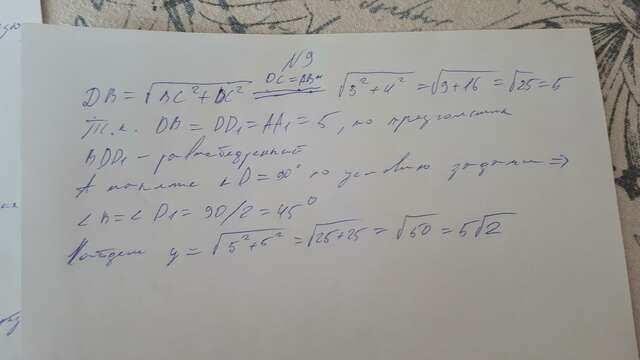 N9
DB = √BC² + DC² DC = AB = √3² + 4² = √9+16 = √25 = 5
Т.к. DB = DD₁ = AA₁ = 5, то треугольник
BDD₁ – равнобедренный
А также ∠D = 90° по условию задачи ⇒
∠B = ∠D₁ = 90/2 = 45°
Найдем y = √5² + 5² = √25+25 = √50 = 5√2